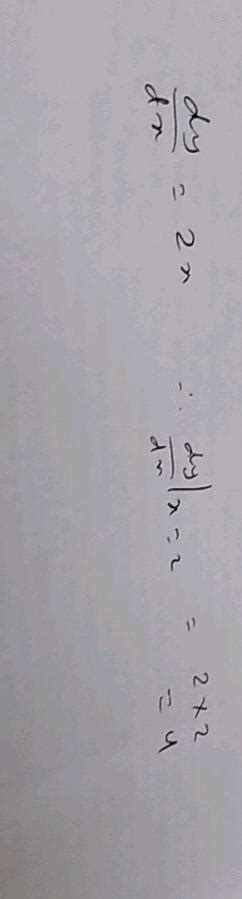 dy/dx = 2x ∴ dy/dx|x=2 = 2×2
= 4